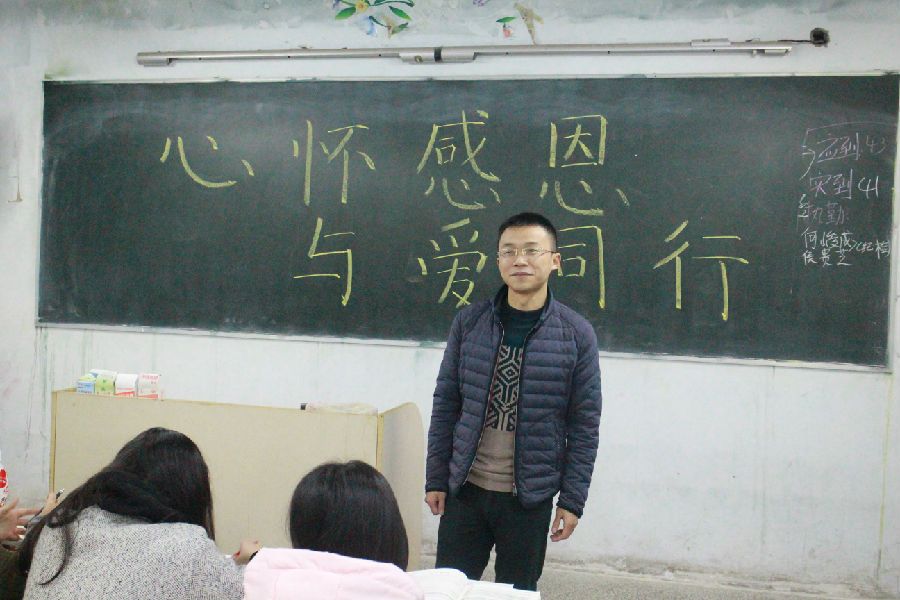 心怀感恩
与爱同行
应到 43
实到 41
执勤
何
侯贵芝